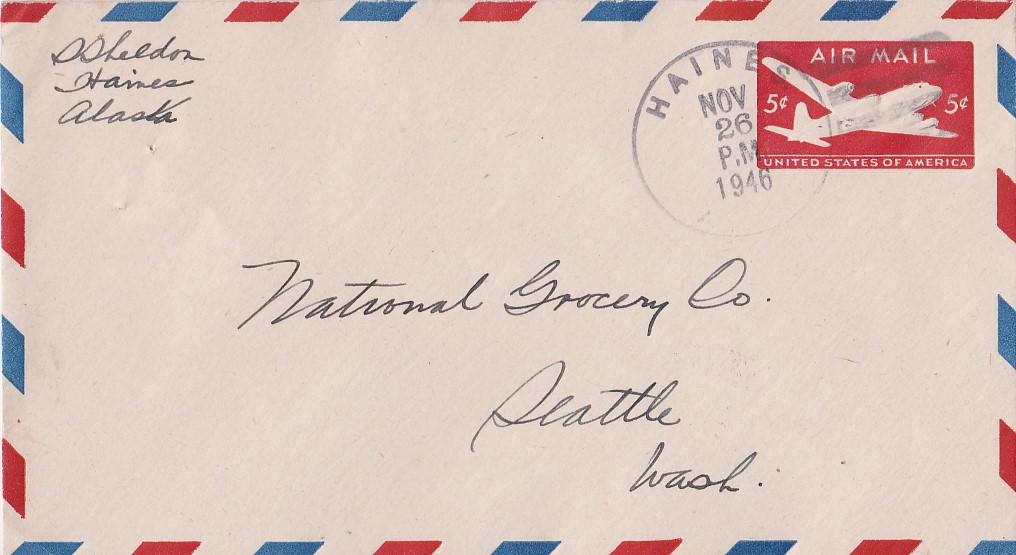 S Sheldon
Haines
Alaska
HAINES
NOV
26
P.M.
1946
A
AIR MAIL
5¢ 5¢
UNITED STATES OF AMERICA
National Grocery Co.
Seattle
Wash.